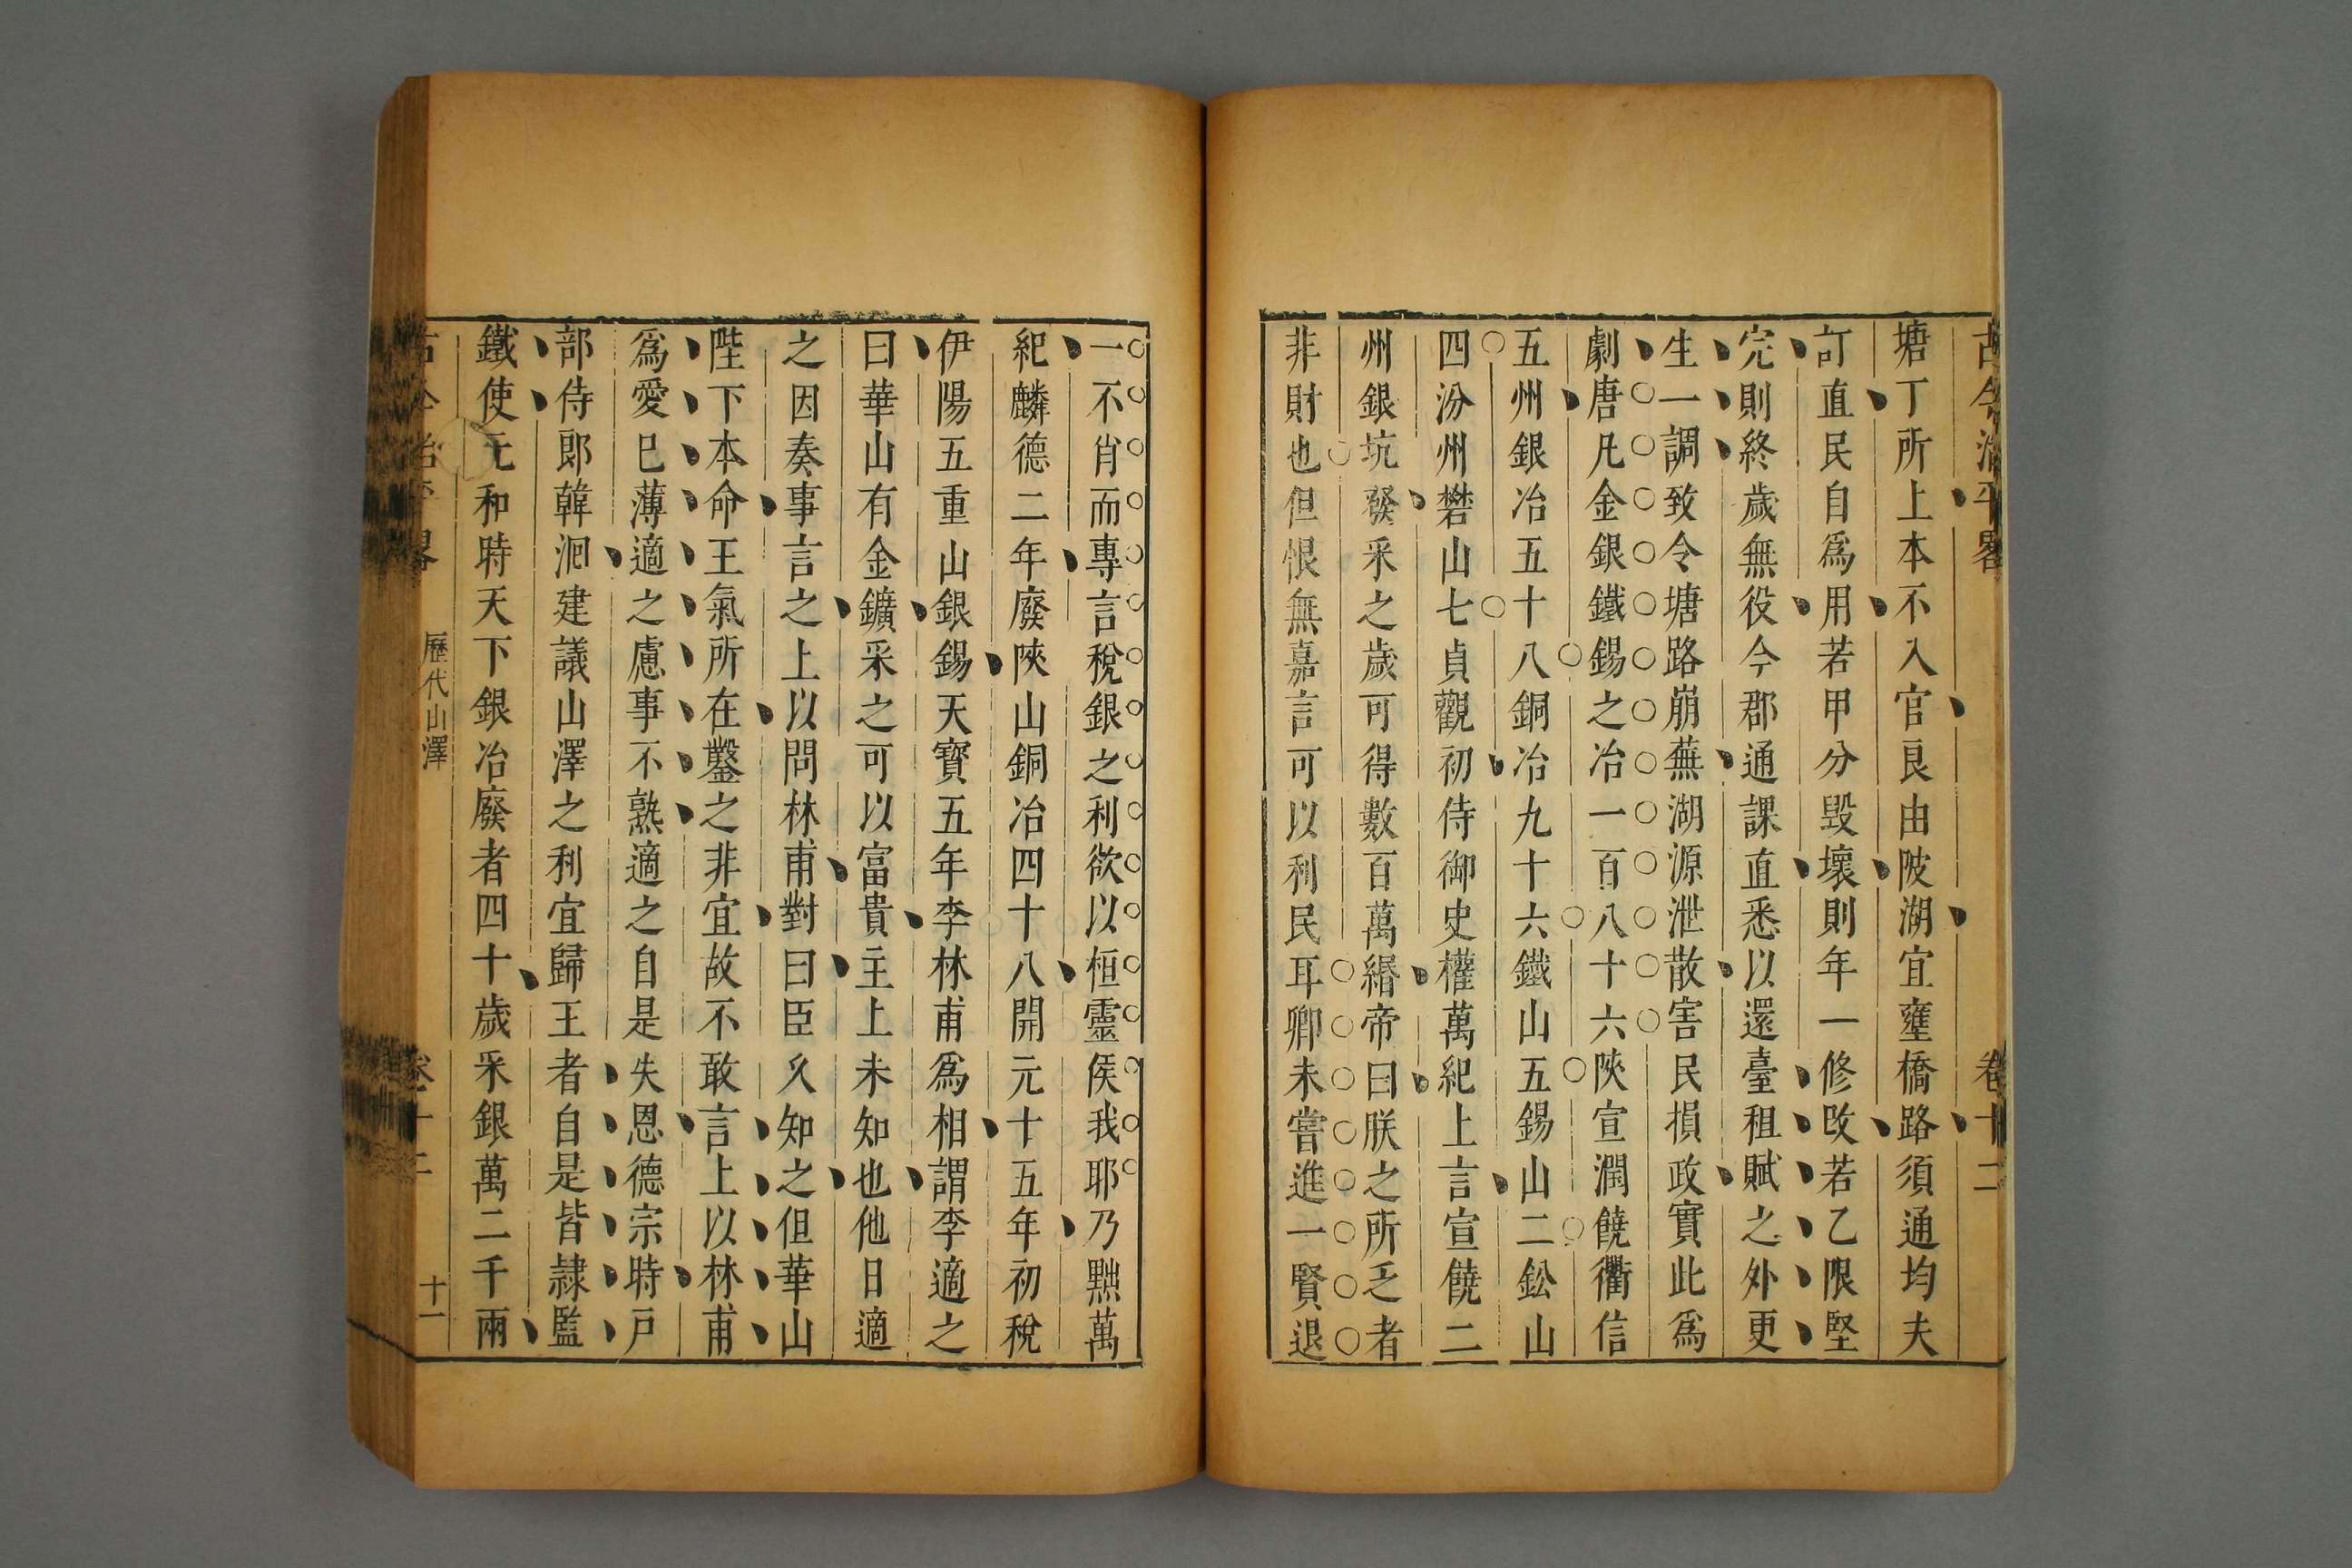 古今治平畧 卷十二
塘丁所上本不入官良由陂湖宜壅橋路須通均夫
訂直民自爲用若甲分毀壞則年一修改若乙限堅
完則終歲無役今郡通課直悉以還臺租賦之外更
生一調致令塘路崩蕪湖源泄散害民損政實此爲
劇唐凡金銀鐵錫之冶一百八十六陝宣潤饒衢信
五州銀冶五十八銅冶九十六鐵山五錫山二鈆山
四汾州礬山七貞觀初侍御史權萬紀上言宣饒二
州銀坑發采之歲可得數百萬緡帝曰朕之所乏者
非財也但恨無嘉言可以利民耳卿未嘗進一賢退
一不肖而專言稅銀之利欲以桓靈俟我耶乃黜萬
紀麟德二年廢陝山銅冶四十八開元十五年初稅
伊陽五重山銀錫天寶五年李林甫爲相謂李適之
曰華山有金鑛采之可以富貴主上未知也他日適
之因奏事言之上以問林甫對曰臣久知之但華山
陛下本命王氣所在鑿之非宜故不敢言上以林甫
爲愛巳薄適之慮事不熟適之自是失恩德宗時戶
部侍郎韓洄建議山澤之利宜歸王者自是皆隷監
鐵使元和時天下銀冶廢者四十歲采銀萬二千兩
古今治平畧 歷代山澤 卷十二 十一